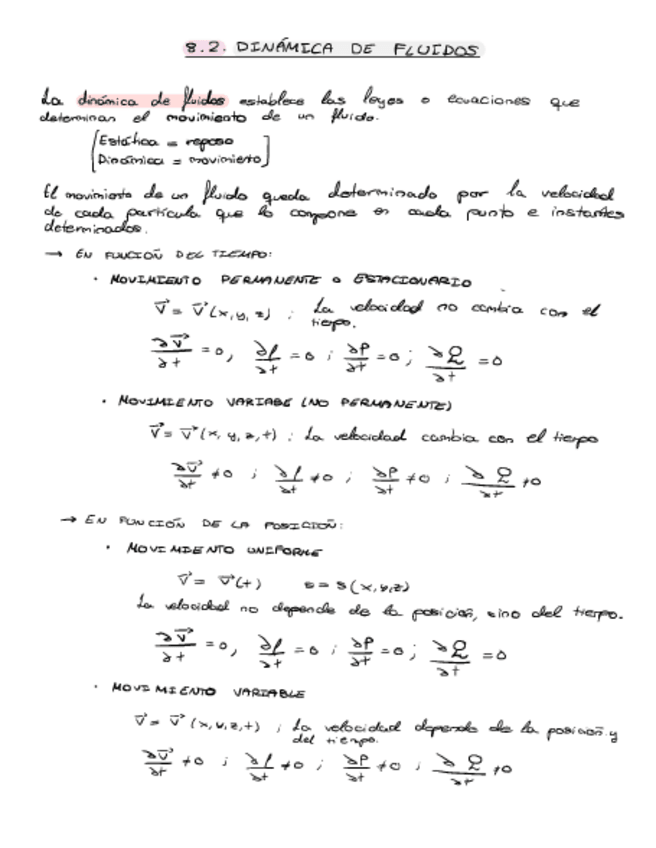 8.2. DINÁMICA DE FLUIDOS
La dinámica de fluidos establece las leyes o ecuaciones que
determinan el movimiento de un fluido.
[Estática = reposo
Dinámica = movimiento]
El movimiento de un fluido queda determinado por la velocidad
de cada partícula que lo compone en cada punto e instantes
determinados.
→ EN FUNCIÓN DEL TIEMPO:
· MOVIMIENTO PERMANENTE O ESTACIONARIO
v⃗ = v⃗ (x, y, z) ; La velocidad no cambia con el
tiempo.
∂v⃗/∂t = 0, ∂ρ/∂t = 0 ; ∂P/∂t = 0 ; ∂Q/∂t = 0
· MOVIMIENTO VARIABE (NO PERMANENTE)
v⃗ = v⃗ (x, y, z, t) ; La velocidad cambia con el tiempo
∂v⃗/∂t ≠ 0 ; ∂ρ/∂t ≠ 0 ; ∂P/∂t ≠ 0 ; ∂Q/∂t ≠ 0
→ EN FUNCIÓN DE LA POSICIÓN:
· MOVIMIENTO UNIFORME
v⃗ = v⃗ (t) s = s (x, y, z)
La velocidad no depende de la posición, sino del tiempo.
∂v⃗/∂t = 0, ∂ρ/∂t = 0 ; ∂P/∂t = 0 ; ∂Q/∂t = 0
· MOVIMIENTO VARIABLE
v⃗ = v⃗ (x, y, z, t) ; La velocidad depende de la posición y
del tiempo.
∂v⃗/∂t ≠ 0 ; ∂ρ/∂t ≠ 0 ; ∂P/∂t ≠ 0 ; ∂Q/∂t ≠ 0